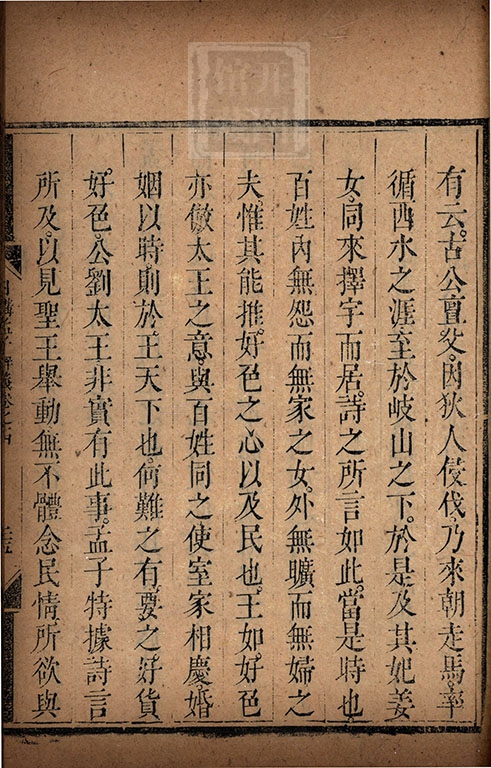 有云。古公亶父。因狄人侵伐。乃來朝走馬。率
循西水之涯。至於岐山之下。於是及其妃姜
女。同來擇宇而居。詩之所言如此。當是時也。
百姓內無怨而無家之女。外無曠而無婦之
夫。惟其能推好色之心以及民也。王如好色。
亦倣太王之意。與百姓同之。使室家相慶。婚
姻以時。則於王天下也。何難之有。要之好貨
好色。公劉太王非實有此事。孟子特據詩言
所及。以見聖王舉動無不體念民情。所欲與
日講
解義卷之四